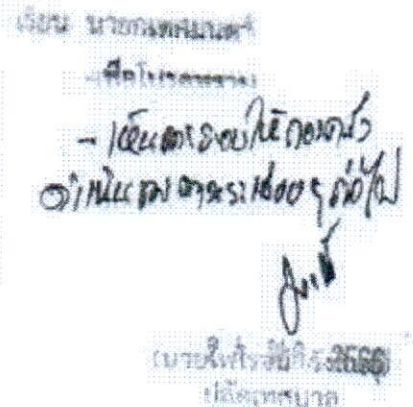 เรียน นายกเทศมนตรี
-เพื่อโปรดทราบ
- เห็นควรมอบให้กองคลัง
ดำเนินการตามระเบียบฯ ต่อไป
2566
ปลัดเทศบาล